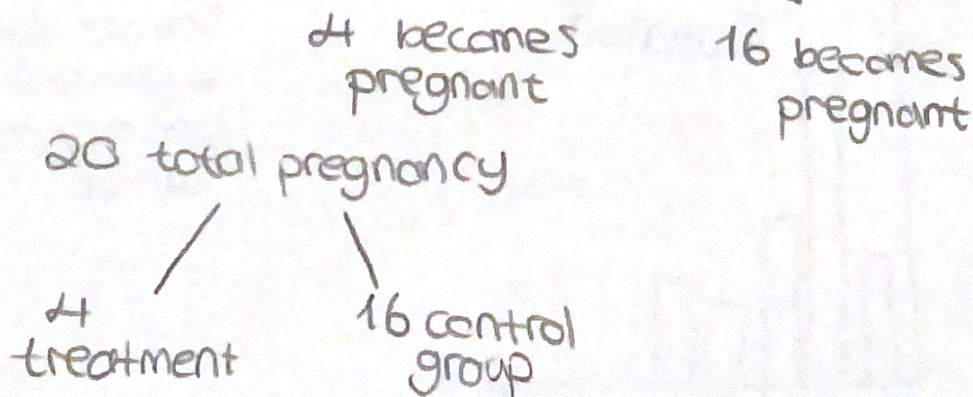 4 becomes
pregnant
16 becomes
pregnant
20 total pregnancy
4
treatment
16 control
group